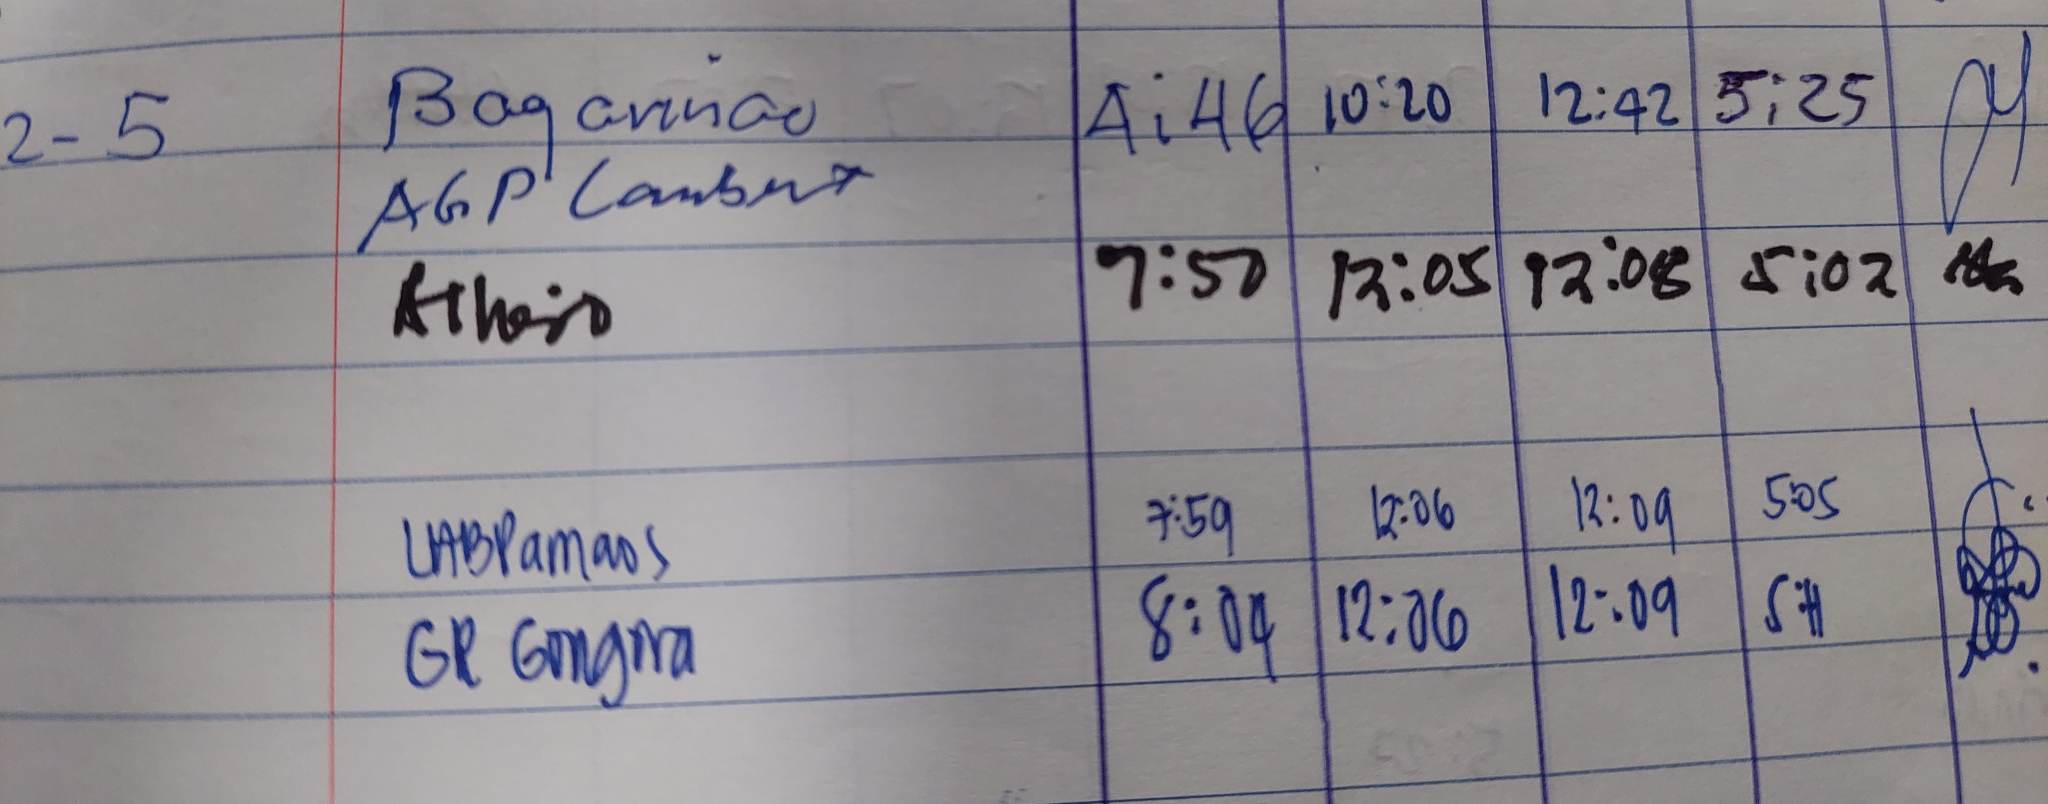 2-5 Bagarinao 4:46 10:20 12:42 5:25
AGP Lambert
7:50 12:05 12:08 5:02
7:59 12:06 12:09 5:05
GR Gongora 8:04 12:06 12:09 5:11